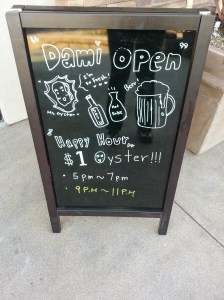 " Dami open "
I'm so fresh!
Mr. oyster
Hot Sake
Beer
Happy Hour
$1 Oyster!!!
• 5pm~7pm
• 9P.M~11P.M